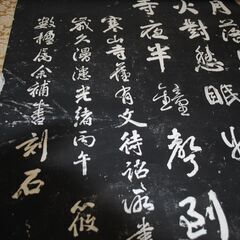 月落
火對愁眠姑
寺夜半鐘聲到
寒山寺舊有文待詔所書
歲久漫漶光緒丙午筱
數楹屬余補書刻石